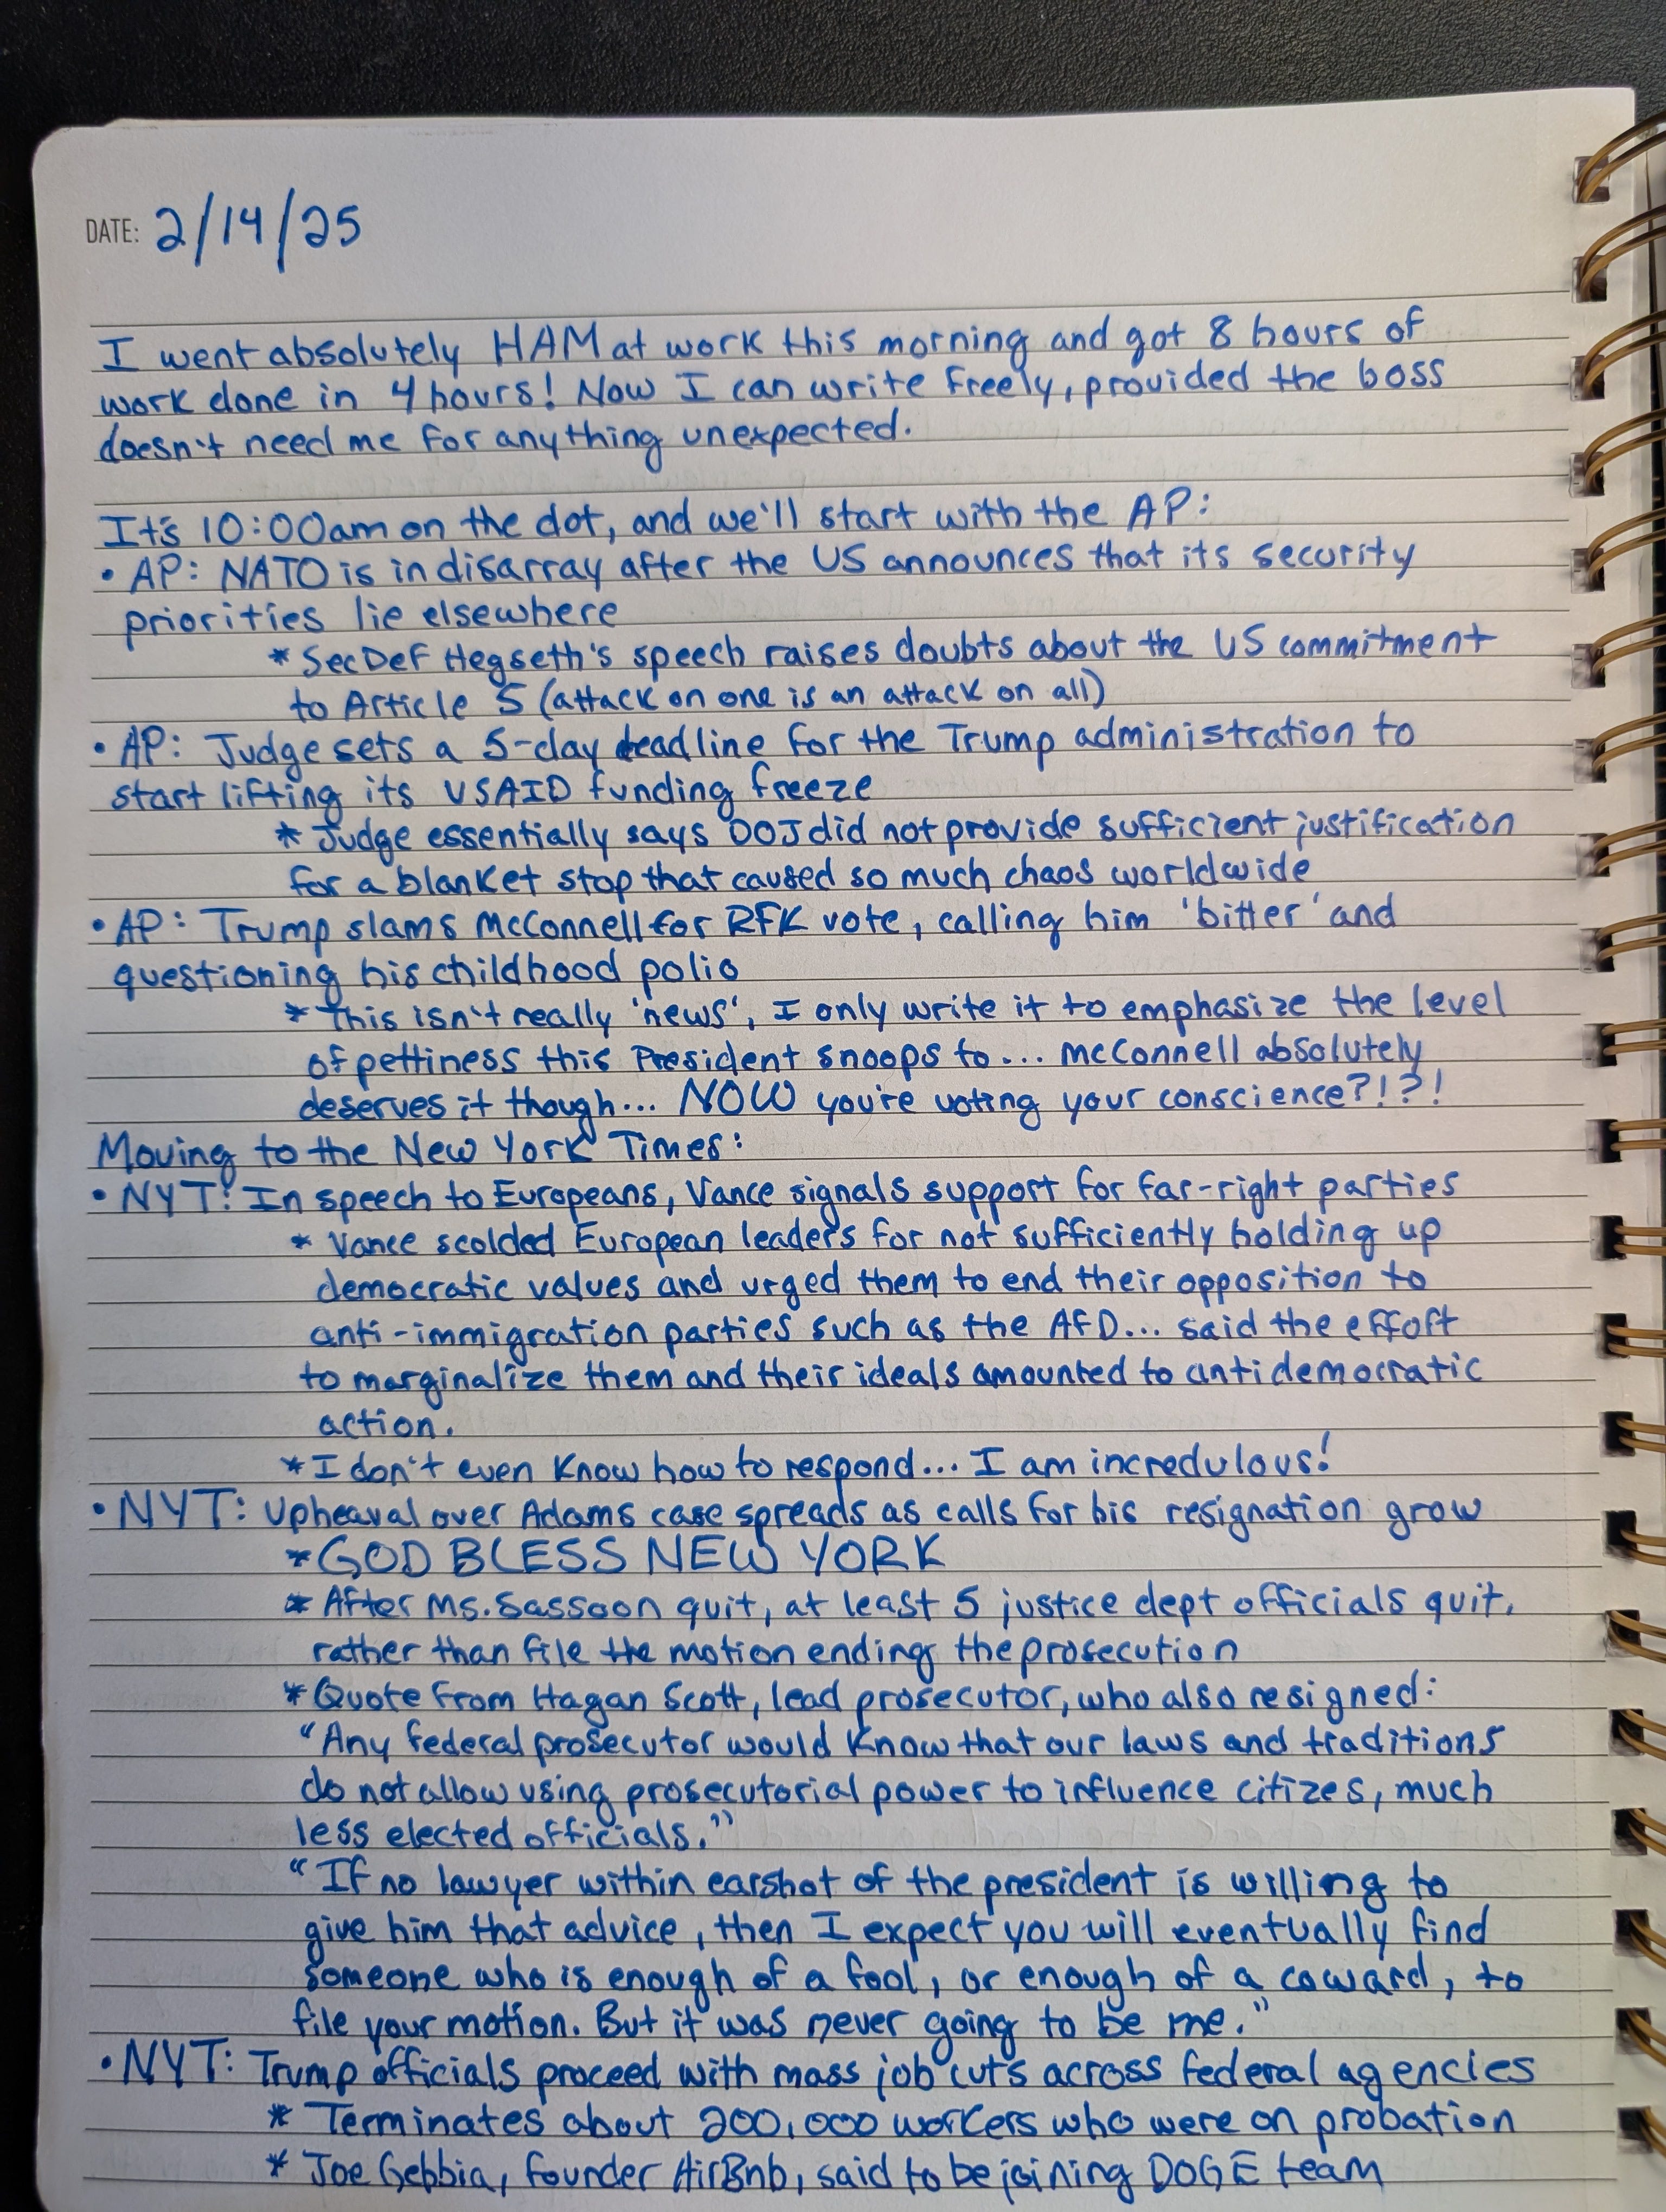 DATE: 2/14/25
I went absolutely HAM at work this morning and got 8 hours of
work done in 4 hours! Now I can write freely, provided the boss
doesn't need me for anything unexpected.
It's 10:00am on the dot, and we'll start with the AP:
• AP: NATO is in disarray after the US announces that its security
priorities lie elsewhere
* SecDef Hegseth's speech raises doubts about the US commitment
to Article 5 (attack on one is an attack on all)
• AP: Judge sets a 5-day deadline for the Trump administration to
start lifting its USAID funding freeze
* Judge essentially says DOJ did not provide sufficient justification
for a blanket stop that caused so much chaos worldwide
• AP: Trump slams McConnell for RFK vote, calling him 'bitter' and
questioning his childhood polio
* This isn't really 'news', I only write it to emphasize the level
of pettiness this President snoops to... McConnell absolutely
deserves it though... NOW you're voting your conscience?!?!
Moving to the New York Times:
• NYT: In speech to Europeans, Vance signals support for far-right parties
* Vance scolded European leaders for not sufficiently holding up
democratic values and urged them to end their opposition to
anti-immigration parties such as the AfD... said the effort
to marginalize them and their ideals amounted to antidemocratic
action.
* I don't even know how to respond... I am incredulous!
• NYT: Upheaval over Adams case spreads as calls for his resignation grow
* GOD BLESS NEW YORK
* After Ms. Sassoon quit, at least 5 justice dept officials quit,
rather than file the motion ending the prosecution
* Quote from Hagan Scott, lead prosecutor, who also resigned:
"Any federal prosecutor would know that our laws and traditions
do not allow using prosecutorial power to influence citizes, much
less elected officials."
"If no lawyer within earshot of the president is willing to
give him that advice, then I expect you will eventually find
someone who is enough of a fool, or enough of a coward, to
file your motion. But it was never going to be me."
• NYT: Trump officials proceed with mass job cuts across federal agencies
* Terminates about 200,000 workers who were on probation
* Joe Gebbia, founder AirBnb, said to be joining DOGE team